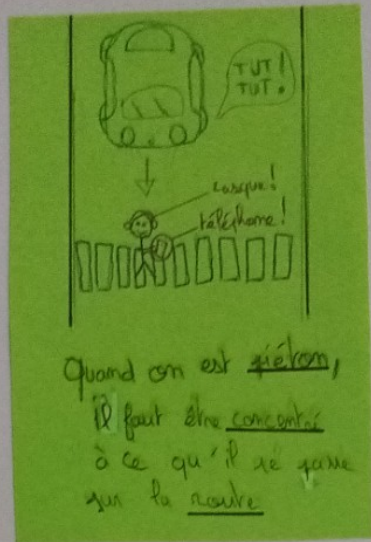 TUT!
TUT!
casque!
téléphone!
Quand on est piéton,
il faut être concentré
à ce qu'il se passe
sur la route